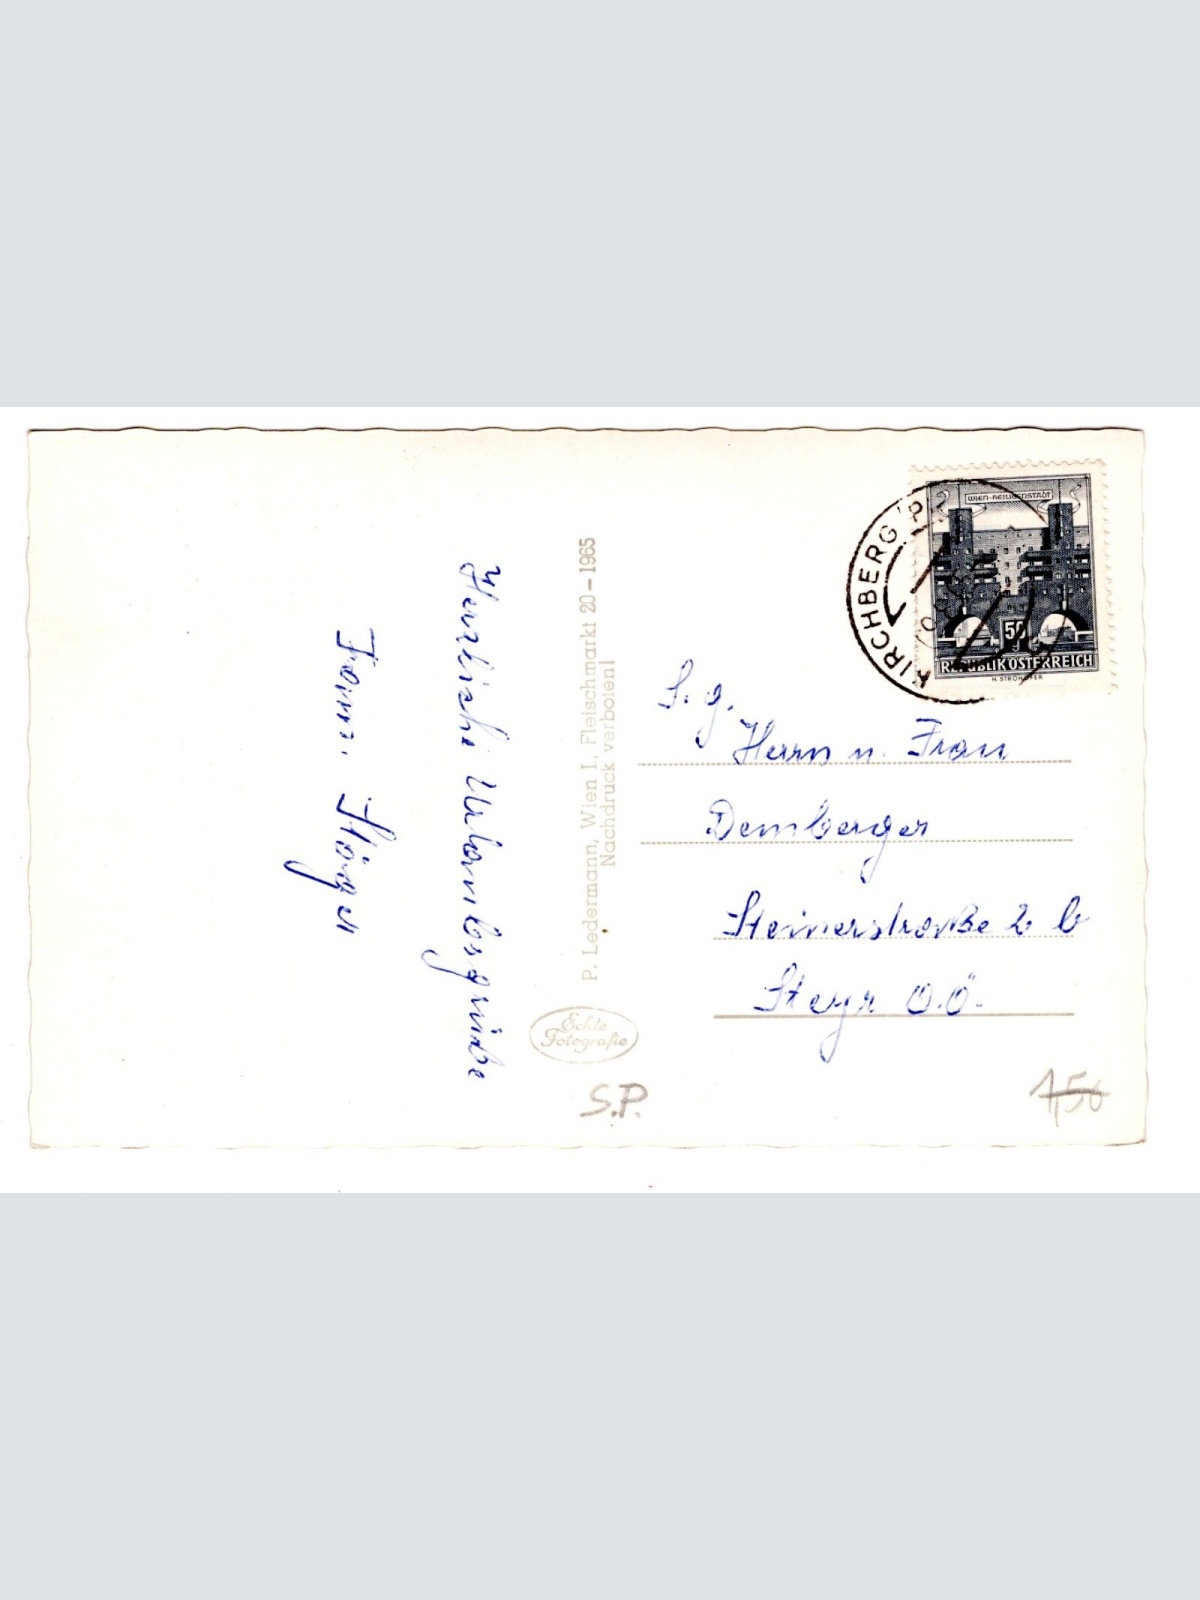 Herzliche Urlaubsgrüße
Fam. Stöger
P. Ledermann, Wien I, Fleischmarkt 20 – 1965
Nachdruck verboten!
Echte
Fotografie
S.P.
KIRCHBERG
WIEN-HEILIGENSTADT
50
REPUBLIK ÖSTERREICH
H. STROHOFER
S. g.
Herrn u. Frau
Demberger
Steinerstraße 2 b
Steyr O.Ö.
1,50